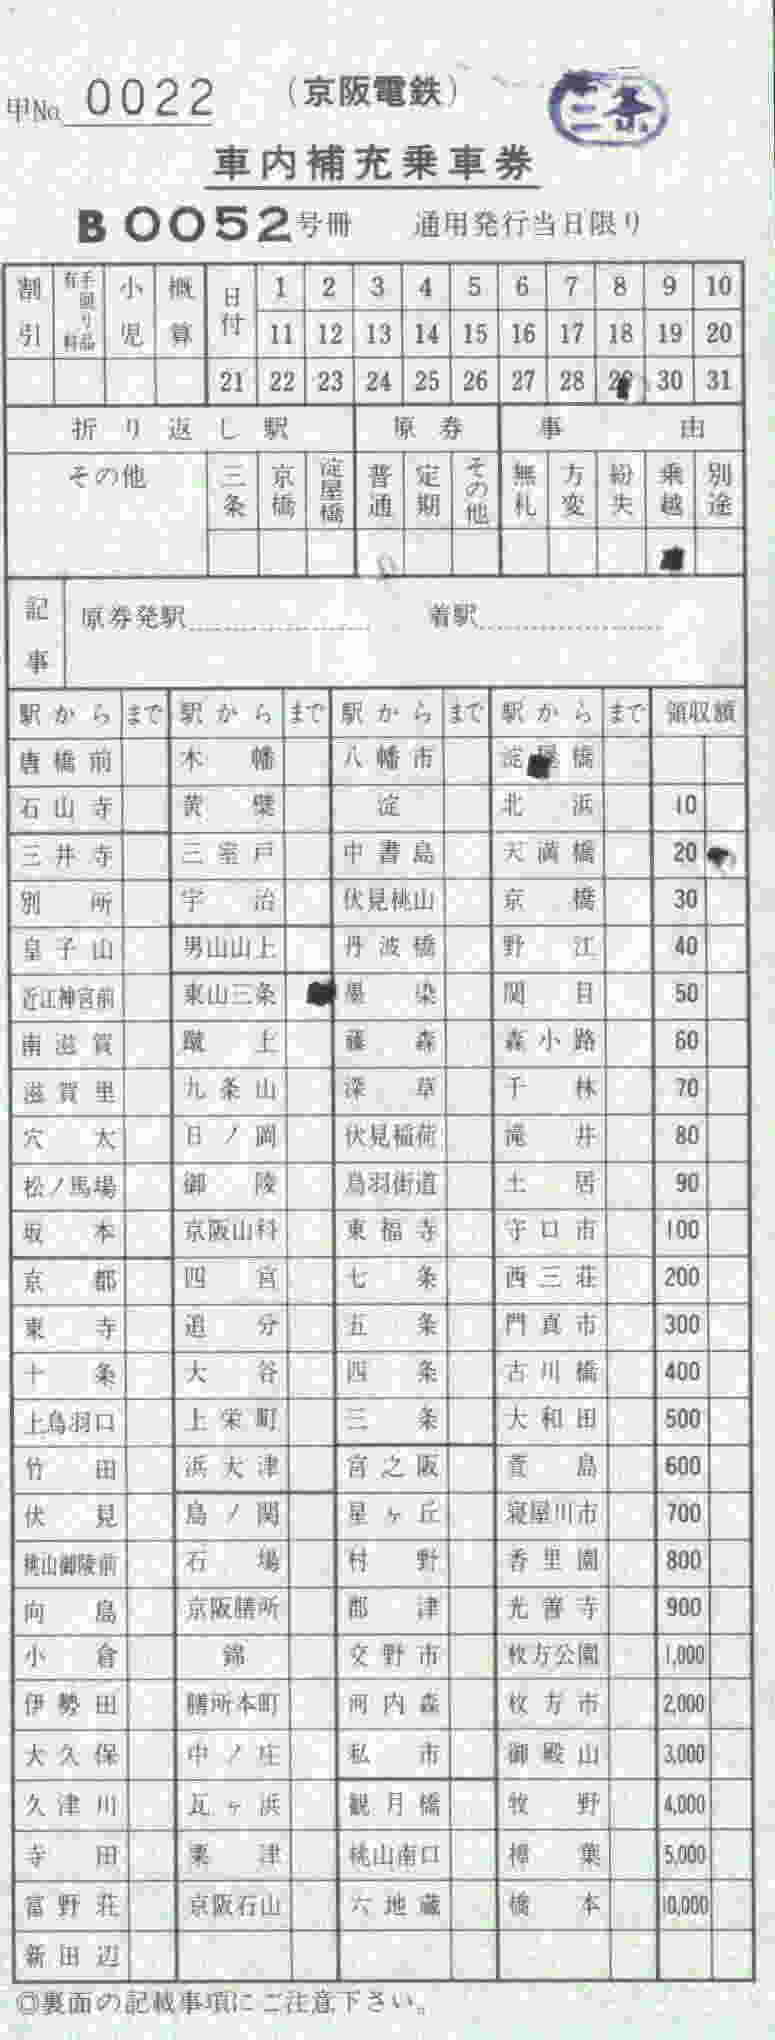 甲No. 0022 (京阪電鉄) 三条
車内補充乗車券
B 0052号冊 通用発行当日限り
割引 有料手回り品 小児 概算 日付 1 2 3 4 5 6 7 8 9 10
11 12 13 14 15 16 17 18 19 20
21 22 23 24 25 26 27 28 29 30 31
折り返し駅 原券 事由
その他 三条 京橋 淀屋橋 普通 定期 その他 無札 方変 紛失 乗越 別途
記事 原券発駅 着駅
駅から まで 駅から まで 駅から まで 駅から まで 領収額
唐橋前 木幡 八幡市 淀屋橋
石山寺 黄檗 淀 北浜 10
三井寺 三室戸 中書島 天満橋 20
別所 宇治 伏見桃山 京橋 30
皇子山 男山山上 丹波橋 野江 40
近江神宮前 東山三条 墨染 関目 50
南滋賀 蹴上 藤森 森小路 60
滋賀里 九条山 深草 千林 70
穴太 日ノ岡 伏見稲荷 滝井 80
松ノ馬場 御陵 鳥羽街道 土居 90
坂本 京阪山科 東福寺 守口市 100
京都 四宮 七条 西三荘 200
東寺 追分 五条 門真市 300
十条 大谷 四条 古川橋 400
上鳥羽口 上栄町 三条 大和田 500
竹田 浜大津 宮之阪 萱島 600
伏見 島ノ関 星ヶ丘 寝屋川市 700
桃山御陵前 石場 村野 香里園 800
向島 京阪膳所 郡津 光善寺 900
小倉 錦 交野市 枚方公園 1,000
伊勢田 膳所本町 河内森 枚方市 2,000
大久保 中ノ庄 私市 御殿山 3,000
久津川 瓦ヶ浜 観月橋 牧野 4,000
寺田 粟津 桃山南口 樟葉 5,000
富野荘 京阪石山 六地蔵 橋本 10,000
新田辺
◎裏面の記載事項にご注意下さい。